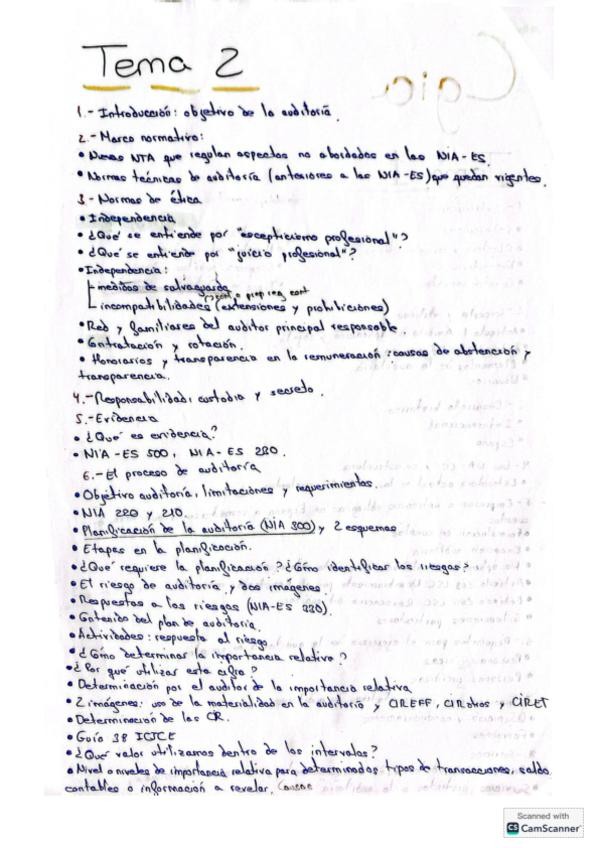 Tema 2
1.- Introducción: objetivo de la auditoría.
2.- Marco normativo:
• Nuevas NTA que regulan aspectos no abordados en las NIA-ES.
• Normas técnicas de auditoría (anteriores a las NIA-ES) que quedan vigentes.
3.- Normas de ética
• Independencia
• ¿Qué se entiende por "escepticismo profesional"?
• ¿Qué se entiende por "juicio profesional"?
• Independencia:
medidas de salvaguarda
incompatibilidades (extensiones y prohibiciones)
• Red y familiares del auditor principal responsable.
• Contratación y rotación.
• Honorarios y transparencia en la remuneración: causas de abstención y
transparencia.
4.- Responsabilidad, custodia y secreto.
5.- Evidencia
• ¿Qué es evidencia?
• NIA-ES 500, NIA-ES 230.
6.- El proceso de auditoría
• Objetivo auditoría, limitaciones y requerimientos.
• NIA 220 y 210.
• Planificación de la auditoría (NIA 300) y 2 esquemas
• Etapas en la planificación.
• ¿Qué requiere la planificación? ¿Cómo identificar los riesgos?
• El riesgo de auditoría y dos imágenes.
• Respuestas a los riesgos (NIA-ES 330).
• Contenido del plan de auditoría.
• Actividades: respuesta al riesgo
• ¿Cómo determinar la importancia relativa?
• ¿Por qué utilizar esta cifra?
• Determinación por el auditor de la importancia relativa
• 2 imágenes: uso de la materialidad en la auditoría y CIREFF, CIRotros y CIRET
• Determinación de las CIR.
• Guía 38 ICJCE
• ¿Qué valor utilizamos dentro de los intervalos?
• Nivel o niveles de importancia relativa para determinados tipos de transacciones, saldos
contables o información a revelar.
Scanned with
CS CamScanner